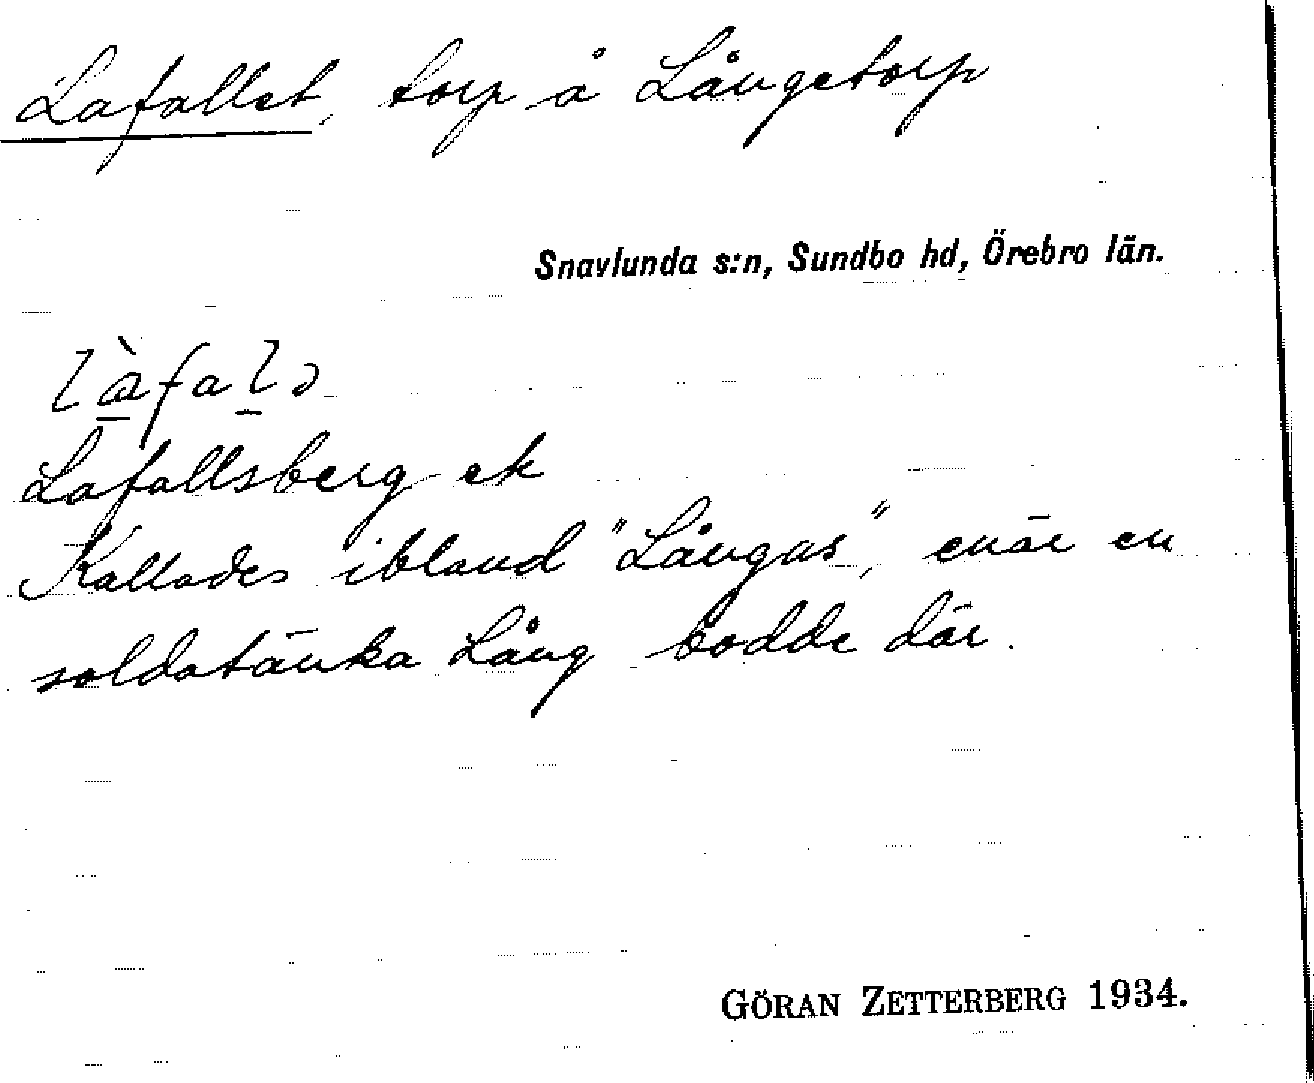 Lafallet, torp å Långetorp
Snavlunda s:n, Sundbo hd, Örebro län.
làfalə
Lafallsberg ek
Kallades ibland "Långas", enär en
soldatänka Lång bodde där.
GÖRAN ZETTERBERG 1934.